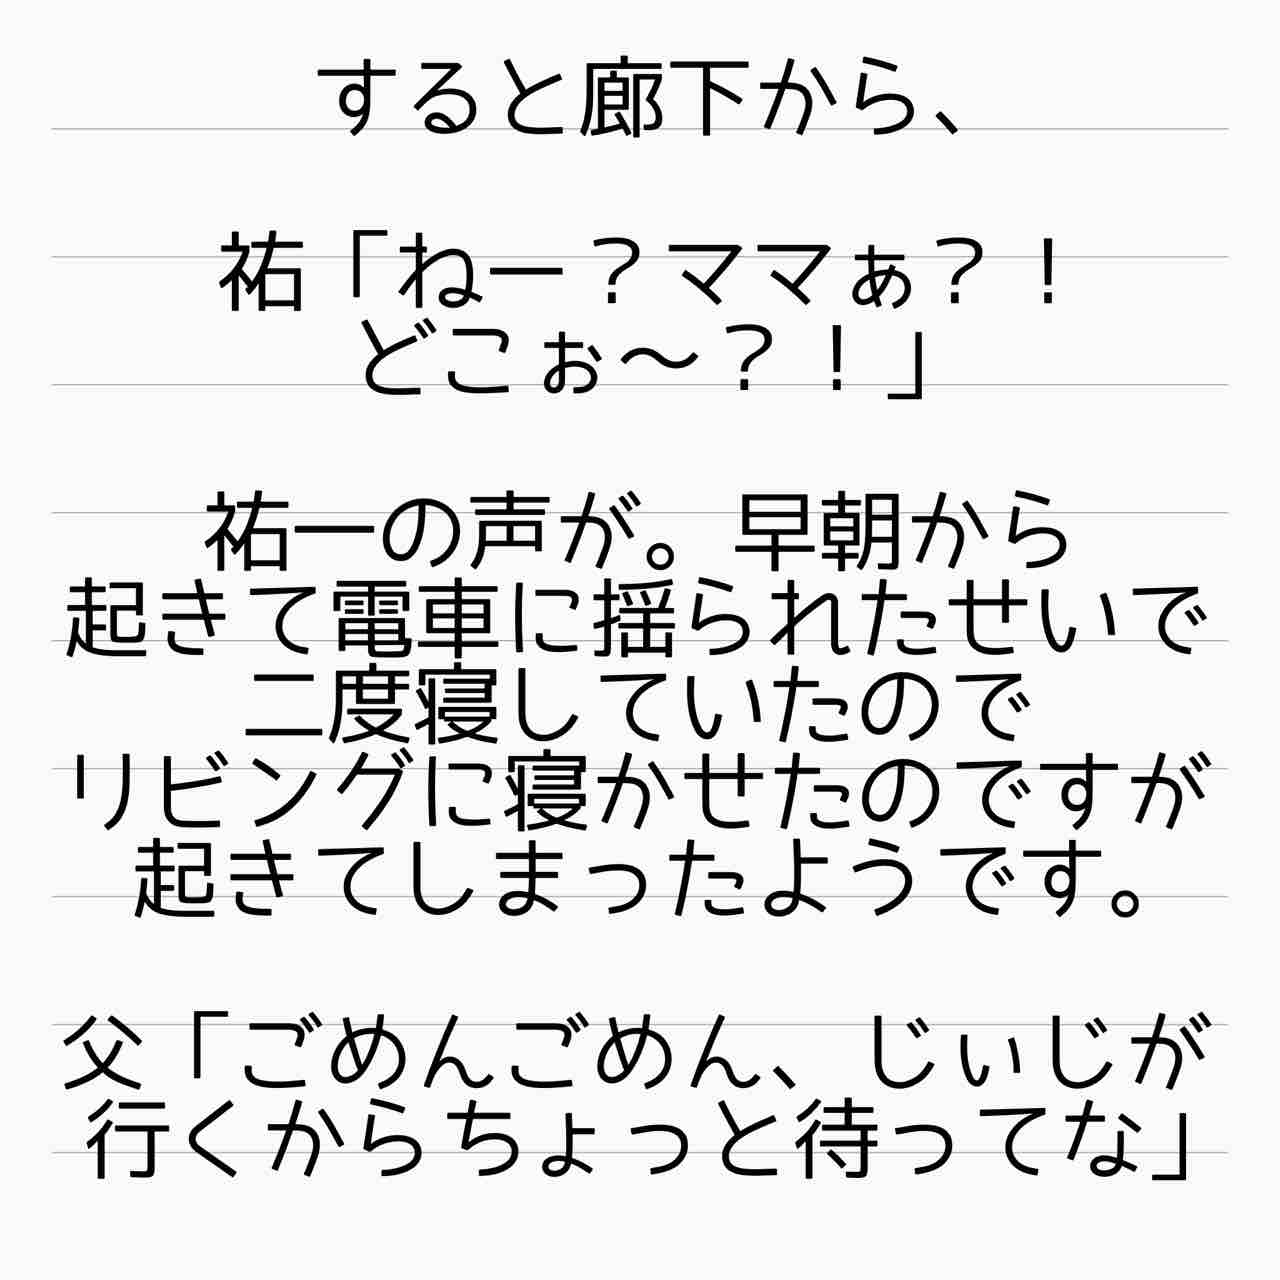 すると廊下から、
祐「ねー？ママぁ？！
どこぉ〜？！」
祐一の声が。早朝から
起きて電車に揺られたせいで
二度寝していたので
リビングに寝かせたのですが
起きてしまったようです。
父「ごめんごめん、じぃじが
行くからちょっと待ってな」